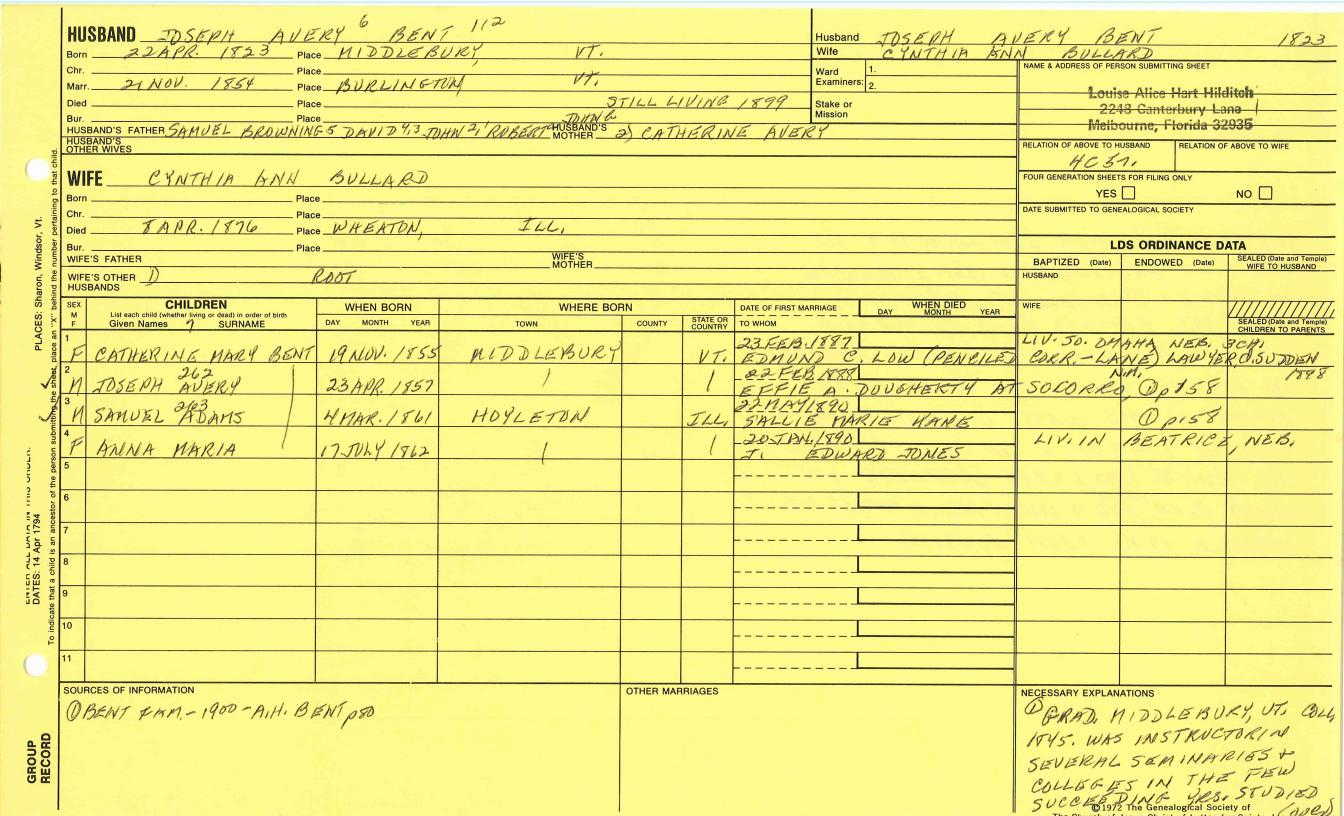 HUSBAND JOSEPH AVERY 6 BENT 112
Born 22 APR. 1823 Place MIDDLEBURY, VT.
Chr. Place
Marr. 21 NOV. 1854 Place BURLINGTON VT.
Died Place STILL LIVING 1899
Bur. Place JOHN
HUSBAND'S FATHER SAMUEL BROWNING 5 DAVID 4,3 JOHN 2, ROBERT HUSBAND'S MOTHER 2) CATHERINE AVERY
HUSBAND'S OTHER WIVES
WIFE CYNTHIA ANN BULLARD
Born Place
Chr. Place
Died 8 APR. 1876 Place WHEATON, ILL.
Bur. Place
WIFE'S FATHER WIFE'S MOTHER
WIFE'S OTHER HUSBANDS D ROOT
Husband JOSEPH AVERY BENT 1823
Wife CYNTHIA ANN BULLARD
Ward Examiners: 1.
2.
Stake or Mission
NAME & ADDRESS OF PERSON SUBMITTING SHEET
Louise Alice Hart Hilditch
2248 Canterbury Lane
Melbourne, Florida 32935
RELATION OF ABOVE TO HUSBAND RELATION OF ABOVE TO WIFE
FOUR GENERATION SHEETS FOR FILING ONLY
YES NO
DATE SUBMITTED TO GENEALOGICAL SOCIETY
LDS ORDINANCE DATA
BAPTIZED (Date) ENDOWED (Date) SEALED (Date and Temple) WIFE TO HUSBAND
HUSBAND
WIFE
SEALED (Date and Temple) CHILDREN TO PARENTS
SEX M F
CHILDREN
List each child (whether living or dead) in order of birth
Given Names 7 SURNAME
WHEN BORN
DAY MONTH YEAR
WHERE BORN
TOWN COUNTY STATE OR COUNTRY
DATE OF FIRST MARRIAGE
TO WHOM
WHEN DIED
DAY MONTH YEAR
1 F CATHERINE MARY BENT 19 NOV. 1855 MIDDLEBURY VT. 23 FEB. 1887 EDMUND C. LOW (PENCILED CORR.-LANE) LAWYER, D. SUDDEN 1898
LIV. SO. OMAHA NEB. 3 CH.
2 M JOSEPH AVERY 262 23 APR. 1857 22 FEB 1888 EFFIE A. DOUGHERTY AT SOCORRO, N.M. ① p 158
3 M SAMUEL ADAMS 263 4 MAR. 1861 HOYLETON ILL. 22 MAY 1890 SALLIE MARIE HANE ① p. 158
4 F ANNA MARIA 17 JULY 1862 20 JAN. 1890 J. EDWARD JONES LIV. IN BEATRICE, NEB.
5
6
7
8
9
10
11
SOURCES OF INFORMATION
① BENT FAM. - 1900 - A.H. BENT p 80
OTHER MARRIAGES
NECESSARY EXPLANATIONS
① GRAD. MIDDLEBURY, VT. COLL,
1845. WAS INSTRUCTOR IN
SEVERAL SEMINARIES +
COLLEGES IN THE FEW
SUCCEEDING YRS. STUDIED
(OVER)
©1972 The Genealogical Society of
PLACES: Sharon, Windsor, Vt.
ENTER ALL DATA IN THIS ORDER:
DATES: 14 Apr 1794
To indicate that a child is an ancestor of the person submitting the sheet, place an "X" behind the number pertaining to that child.
GROUP RECORD